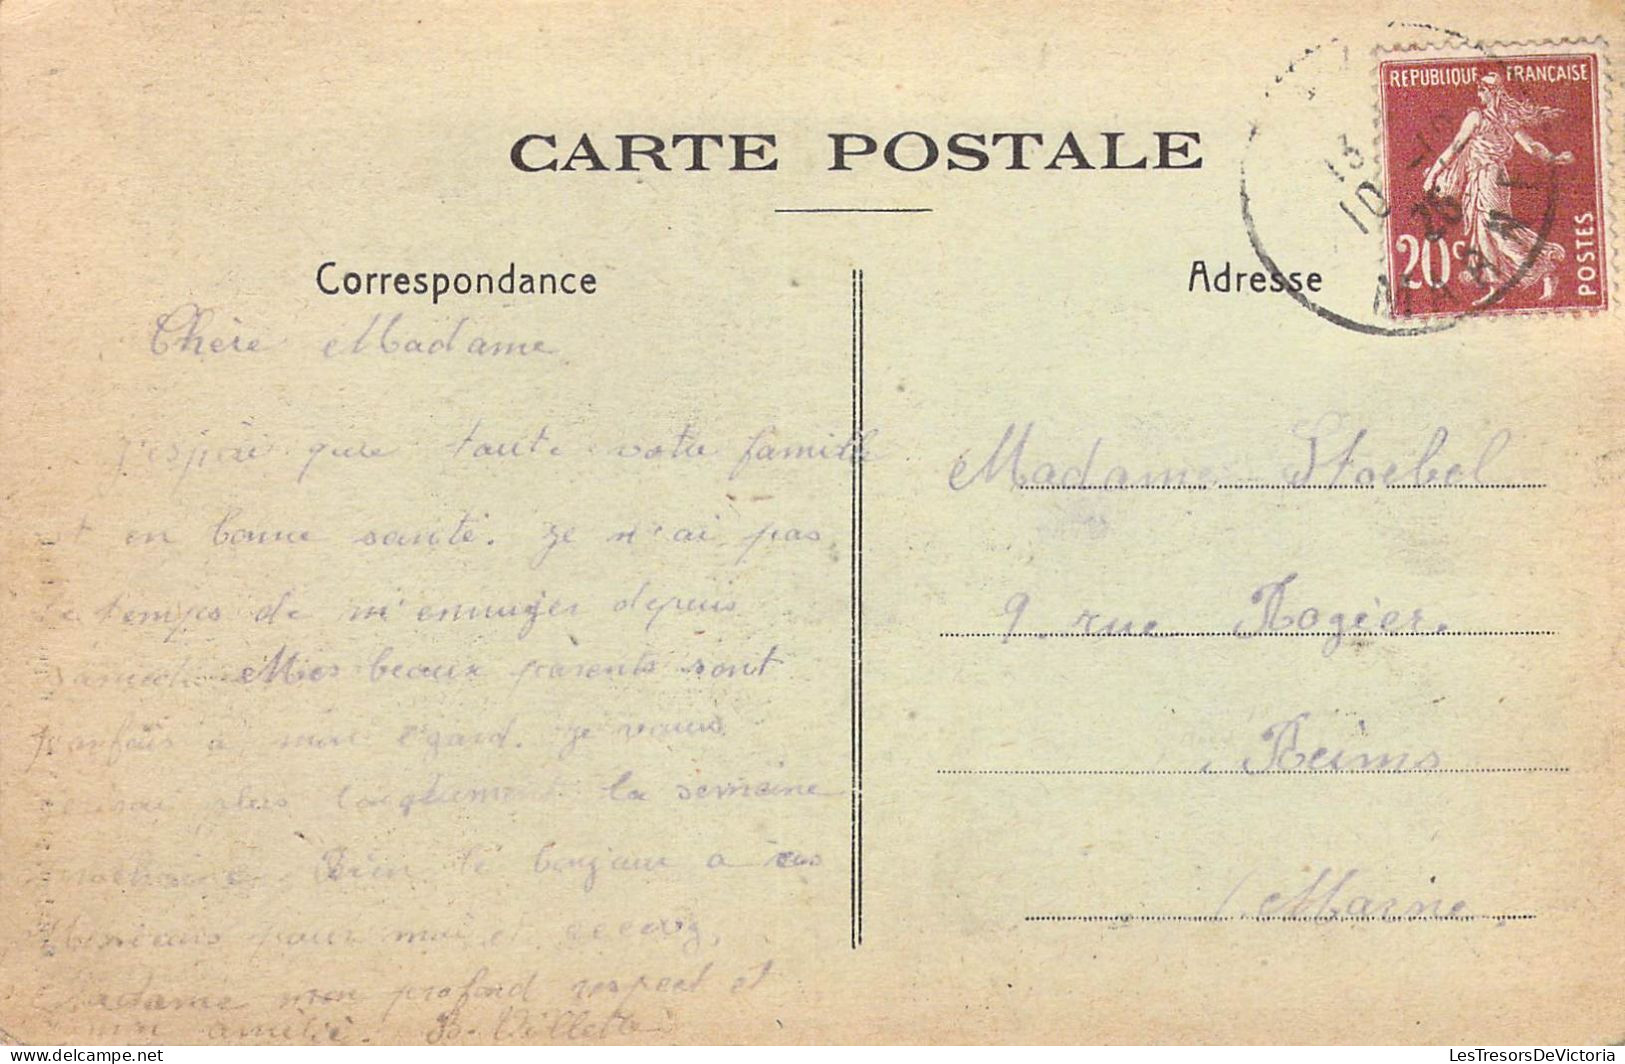 CARTE POSTALE
REPUBLIQUE FRANÇAISE
20c
POSTES
13
10 - 12
25
MARNE
Correspondance
Adresse
Chère Madame
J'espère que toute votre famille
est en bonne santé. Je n'ai pas
le temps de m'ennuyer depuis
samedi. Mes beaux parents sont
parfais à mon égard. Je vous
plus longuement la semaine
prochaine. Bien le bonjour a vos
Messieurs pour moi et recevez,
Madame mon profond respect et
mon amitié. B. Villette
Madame Stoebel
9 rue Rogier.
Reims
(Marne)
LesTresorsDeVictoria
delcampe.net